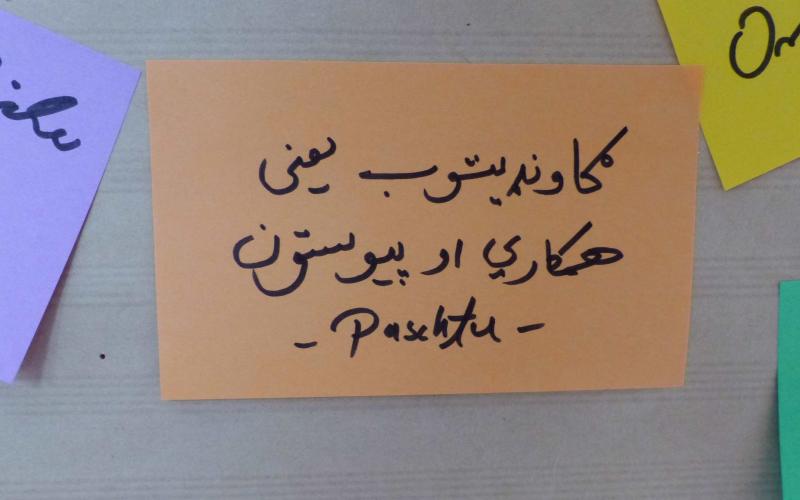 ګاونډیتوب یعنی
همکاري او پیوستون
- Paschtu -